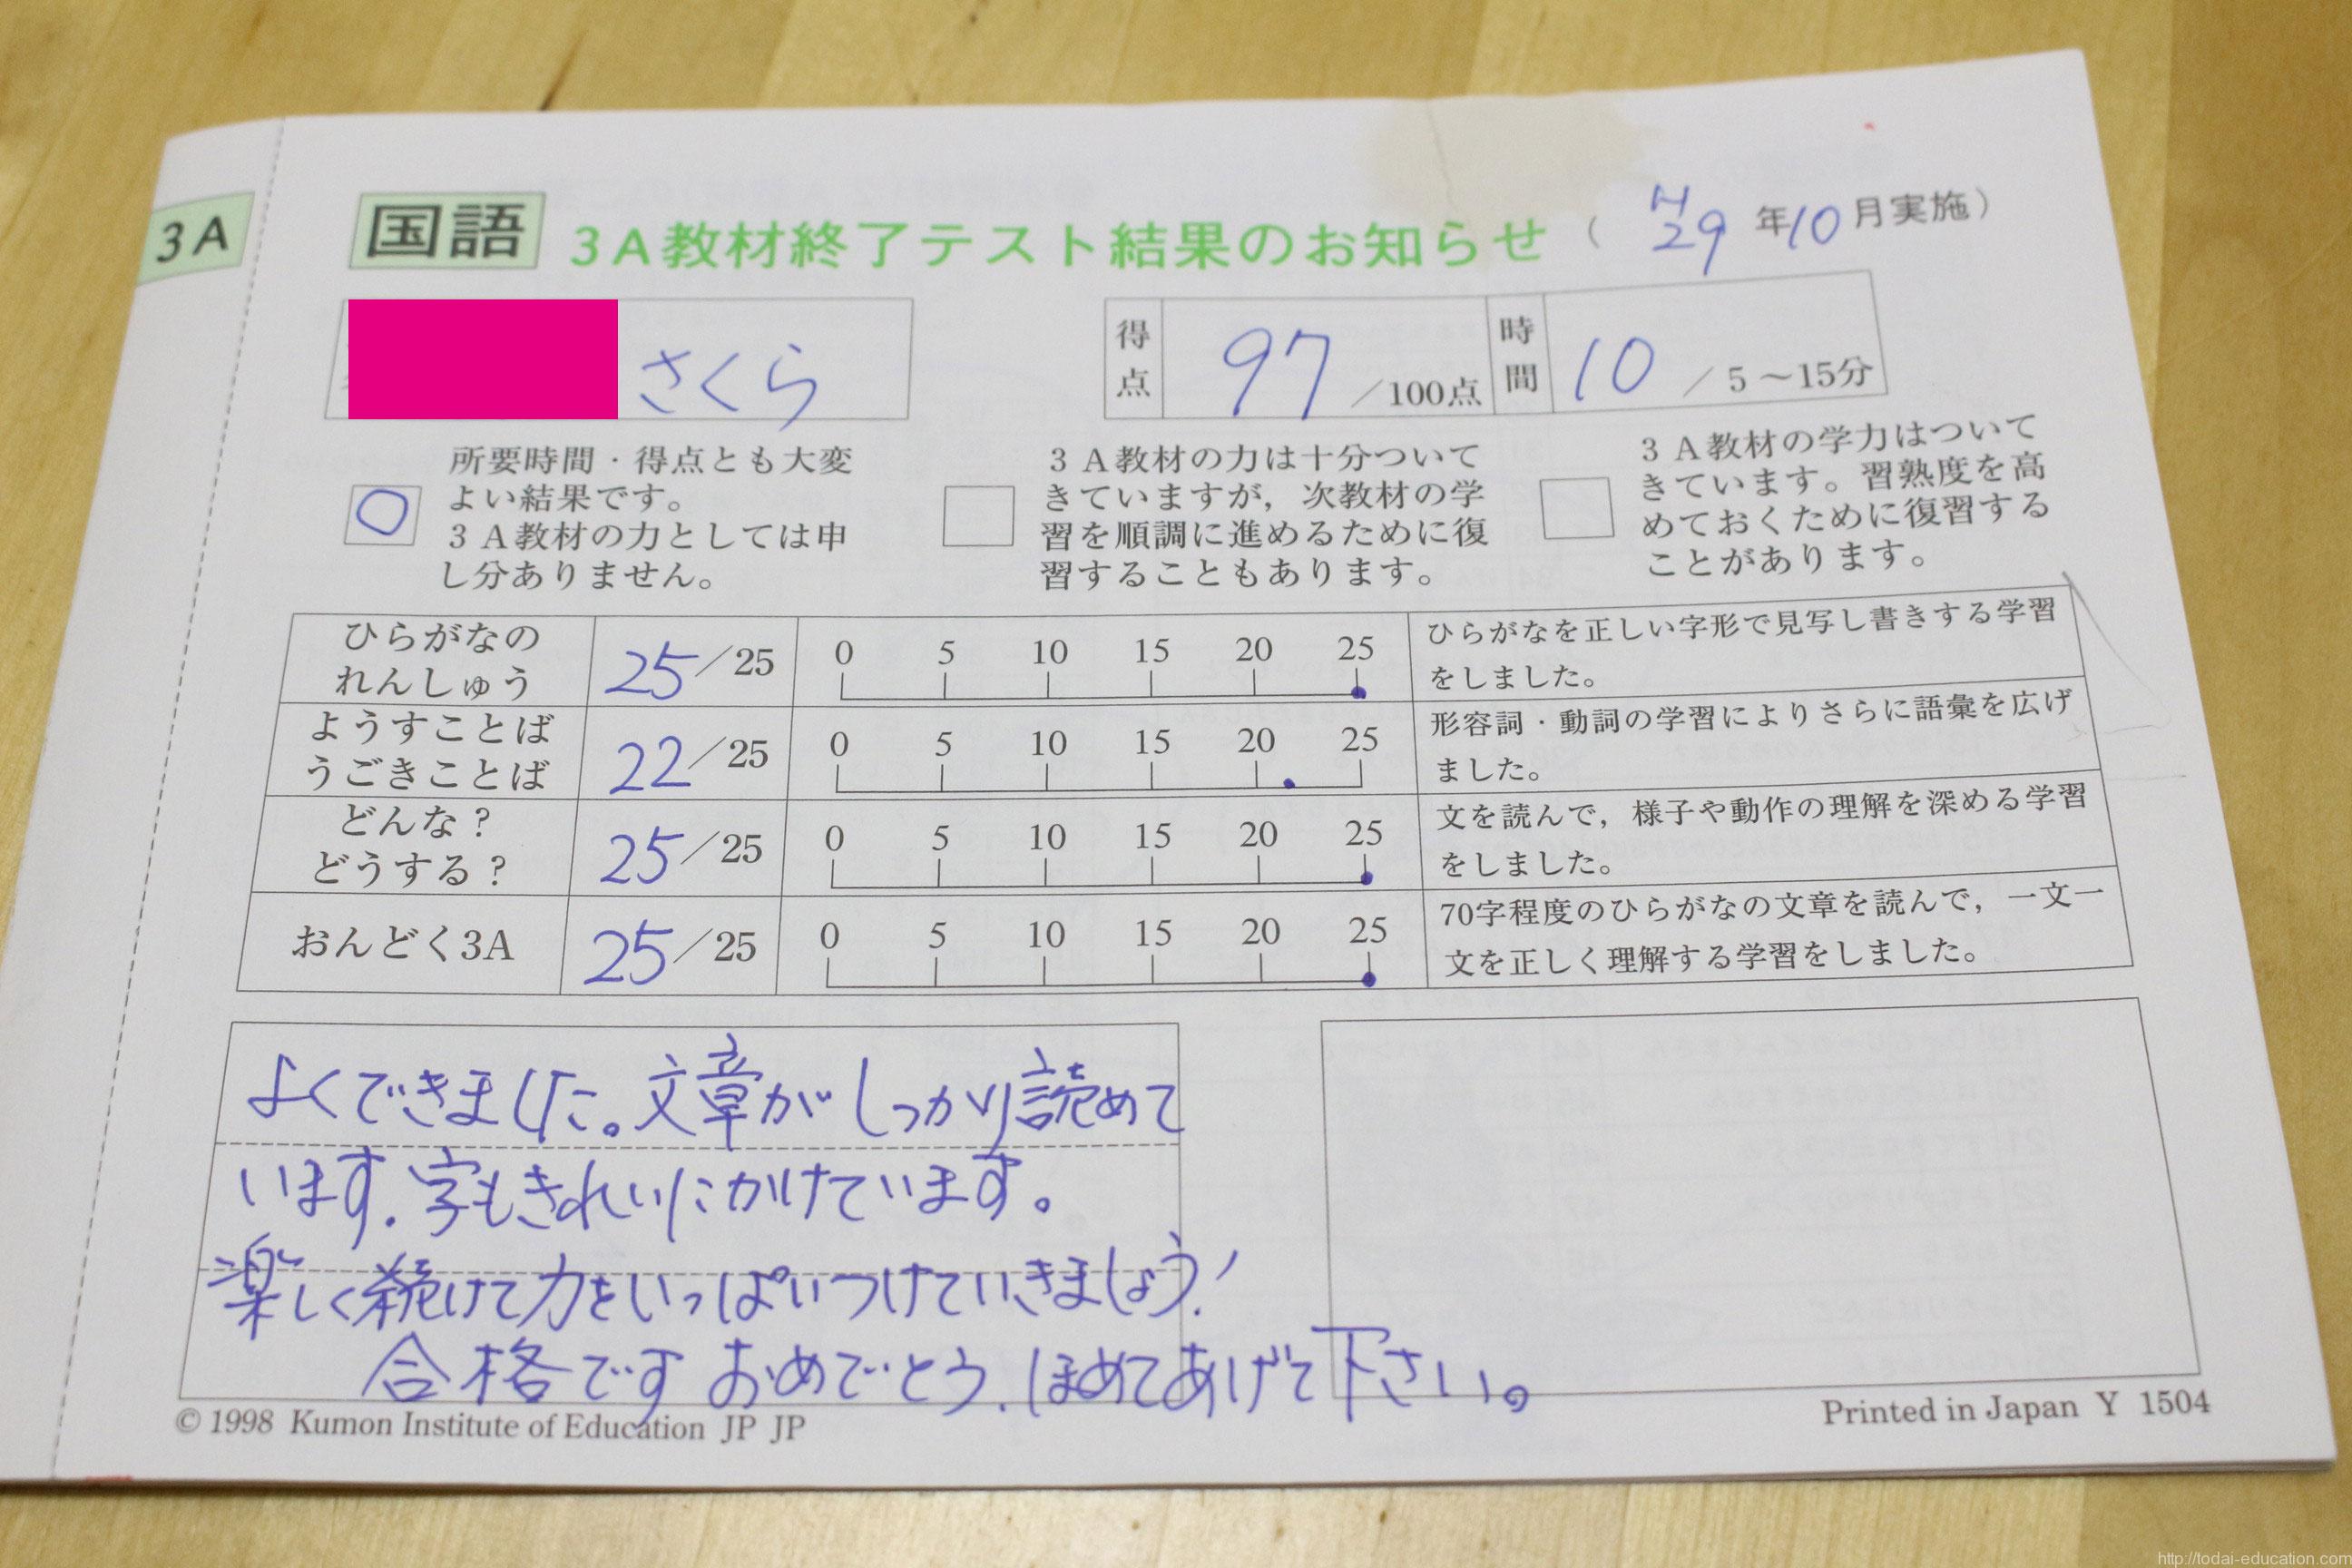 3A
国語 3A教材終了テスト結果のお知らせ ( H29年10月実施)
さくら
得点 97/100点 時間 10/5～15分
○
所要時間・得点とも大変
よい結果です。
3A教材の力としては申
し分ありません。
3A教材の力は十分ついて
きていますが，次教材の学
習を順調に進めるために復
習することもあります。
3A教材の学力はついて
きています。習熟度を高
めておくために復習する
ことがあります。
ひらがなの
れんしゅう
25/25
0 5 10 15 20 25
ひらがなを正しい字形で見写し書きする学習
をしました。
ようすことば
うごきことば
22/25
0 5 10 15 20 25
形容詞・動詞の学習によりさらに語彙を広げ
ました。
どんな？
どうする？
25/25
0 5 10 15 20 25
文を読んで，様子や動作の理解を深める学習
をしました。
おんどく3A
25/25
0 5 10 15 20 25
70字程度のひらがなの文章を読んで，一文一
文を正しく理解する学習をしました。
よくできました。文章がしっかり読めて
います。字もきれいにかけています。
楽しく続けて力をいっぱいつけていきましょう！
合格です おめでとう。ほめてあげて下さい。
© 1998 Kumon Institute of Education JP JP
Printed in Japan Y 1504
http://todai-education.com